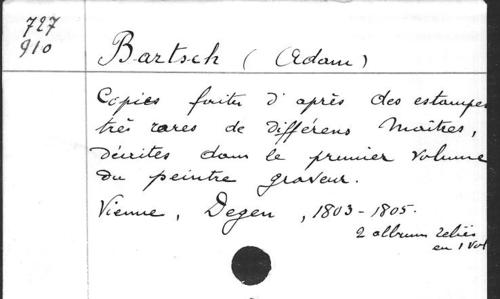 727
910
Bartsch (Adam)
Copies faites d'après des estampes
très rares de différens Maîtres,
décrites dans le premier volume
du peintre graveur.
Vienne, Degen, 1803-1805.
2 albums reliés
en 1 vol